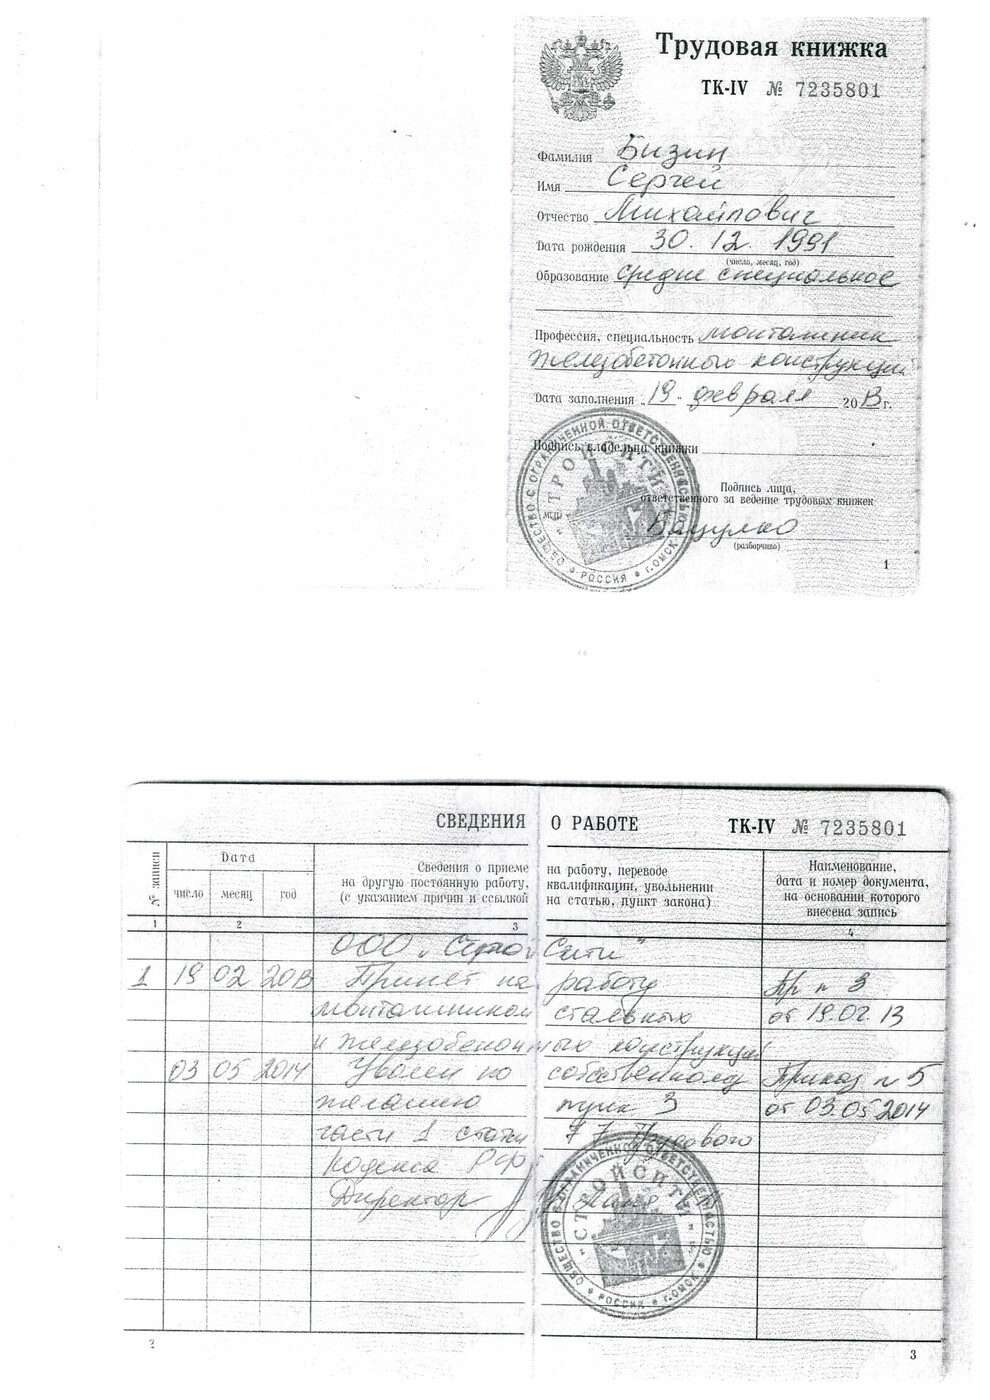 Трудовая книжка
ТК-IV № 7235801
Фамилия Бизин
Имя Сергей
Отчество Михайлович
Дата рождения 30. 12. 1991
(число, месяц, год)
Образование средне специальное
Профессия, специальность монтажник
железобетонных конструкций
Дата заполнения 19 февраля 2013 г.
Подпись владельца книжки
Подпись лица,
ответственного за ведение трудовых книжек
М.П.
Бацулко
(разборчиво)
ОБЩЕСТВО С ОГРАНИЧЕННОЙ ОТВЕТСТВЕННОСТЬЮ
"СТРОЙСИТИ"
РОССИЯ * Г.ОМСК
1
СВЕДЕНИЯ О РАБОТЕ ТК-IV № 7235801
№ записи
Дата
число месяц год
Сведения о приеме на работу, переводе
на другую постоянную работу, квалификации, увольнении
(с указанием причин и ссылкой на статью, пункт закона)
Наименование,
дата и номер документа,
на основании которого
внесена запись
1 2 3 4
ООО "Строй Сити"
1 19 02 2013 Принят на работу Пр n 3
монтажником стальных от 19.02.13
и железобетонных конструкций
03 05 2014 Уволен по собственному Приказ n 5
желанию пунк 3 от 03.05 2014
части 1 статьи 77 Трудового
Кодекса РФ
Директор
ОБЩЕСТВО С ОГРАНИЧЕННОЙ ОТВЕТСТВЕННОСТЬЮ
"СТРОЙСИТИ"
РОССИЯ * Г.ОМСК
2
3